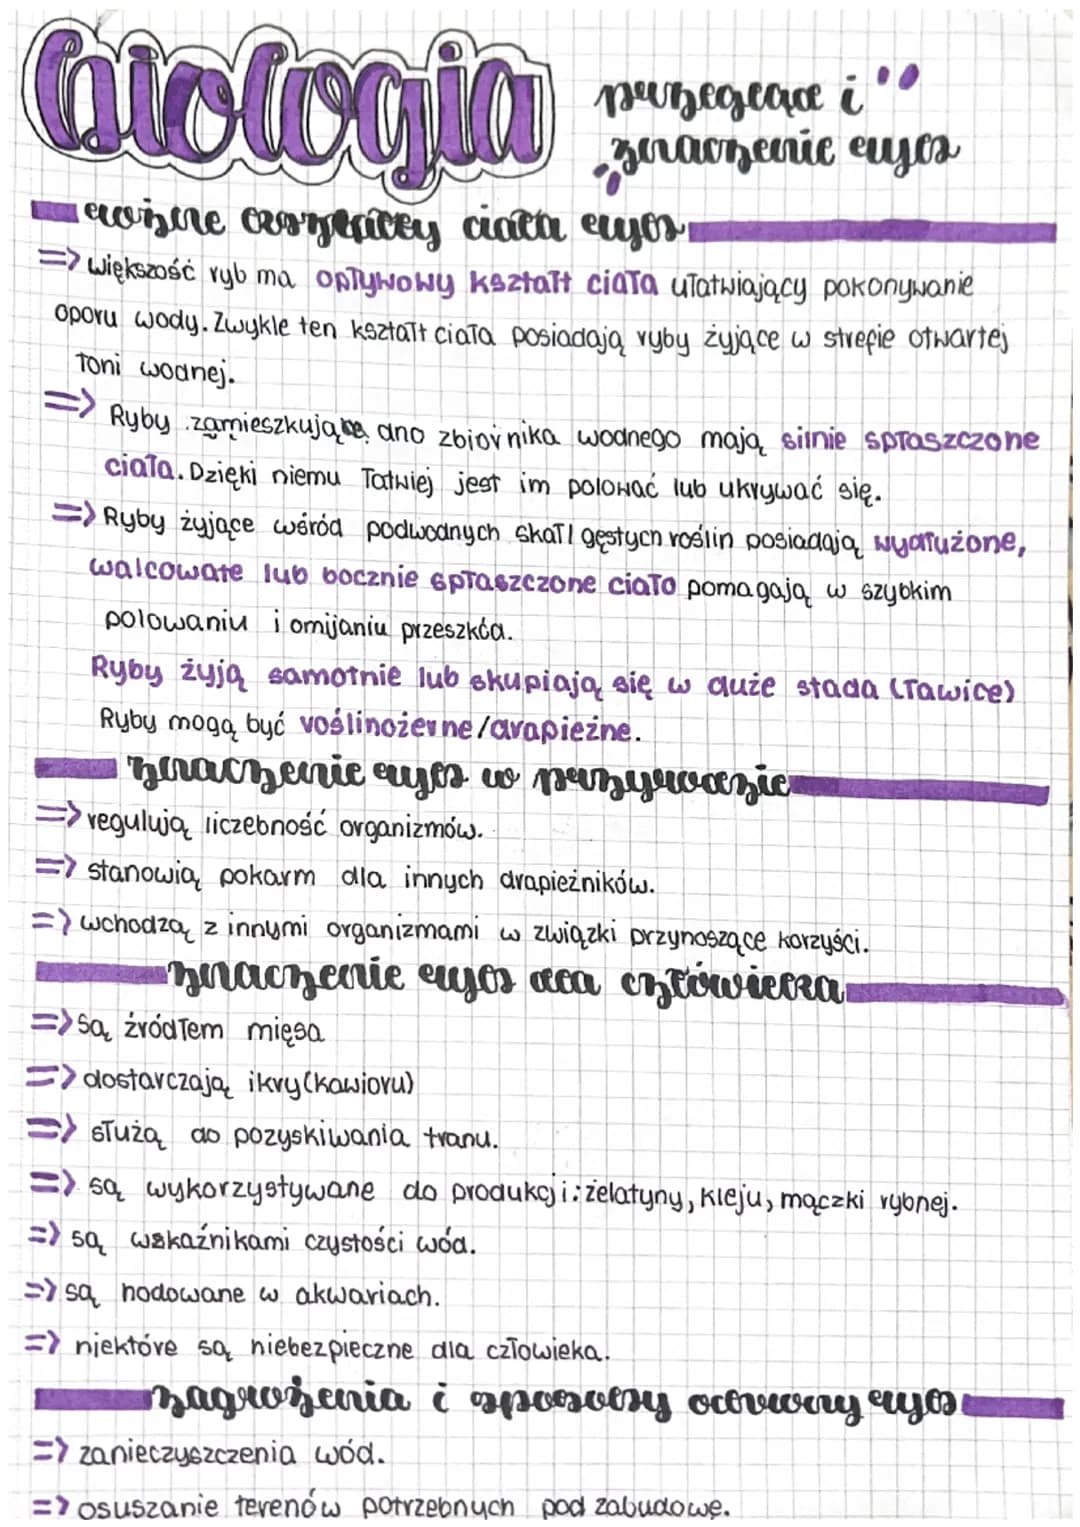 biologia
przegląd i
znaczenie ryb
różne kształty ciała ryb
=> większość ryb ma opływowy kształt ciała ułatwiający pokonywanie
oporu wody. Zwykle ten kształt ciała posiadają ryby żyjące w strefie otwartej
toni wodnej.
=> Ryby zamieszkujące dno zbiornika wodnego mają silnie spłaszczone
ciała. Dzięki niemu łatwiej jest im polować lub ukrywać się.
=> Ryby żyjące wśród podwodnych skał i gęstych roślin posiadają wydłużone,
walcowate lub bocznie spłaszczone ciało pomagają w szybkim
polowaniu i omijaniu przeszkód.
Ryby żyją samotnie lub skupiają się w duże stada (ławice)
Ryby mogą być roślinożerne/drapieżne.
znaczenie ryb w przyrodzie
=> regulują liczebność organizmów.
=> stanowią pokarm dla innych drapieżników.
=> wchodzą z innymi organizmami w związki przynoszące korzyści.
znaczenie ryb dla człowieka
=> Są źródłem mięsa
=> dostarczają ikry(kawioru)
=> służą do pozyskiwania tranu.
=> są wykorzystywane do produkcji: żelatyny, kleju, mączki rybnej.
=> są wskaźnikami czystości wód.
=> są hodowane w akwariach.
=> niektóre są niebezpieczne dla człowieka.
zagrożenia i sposoby ochrony ryb
=> zanieczyszczenia wód.
=> osuszanie terenów potrzebnych pod zabudowę.